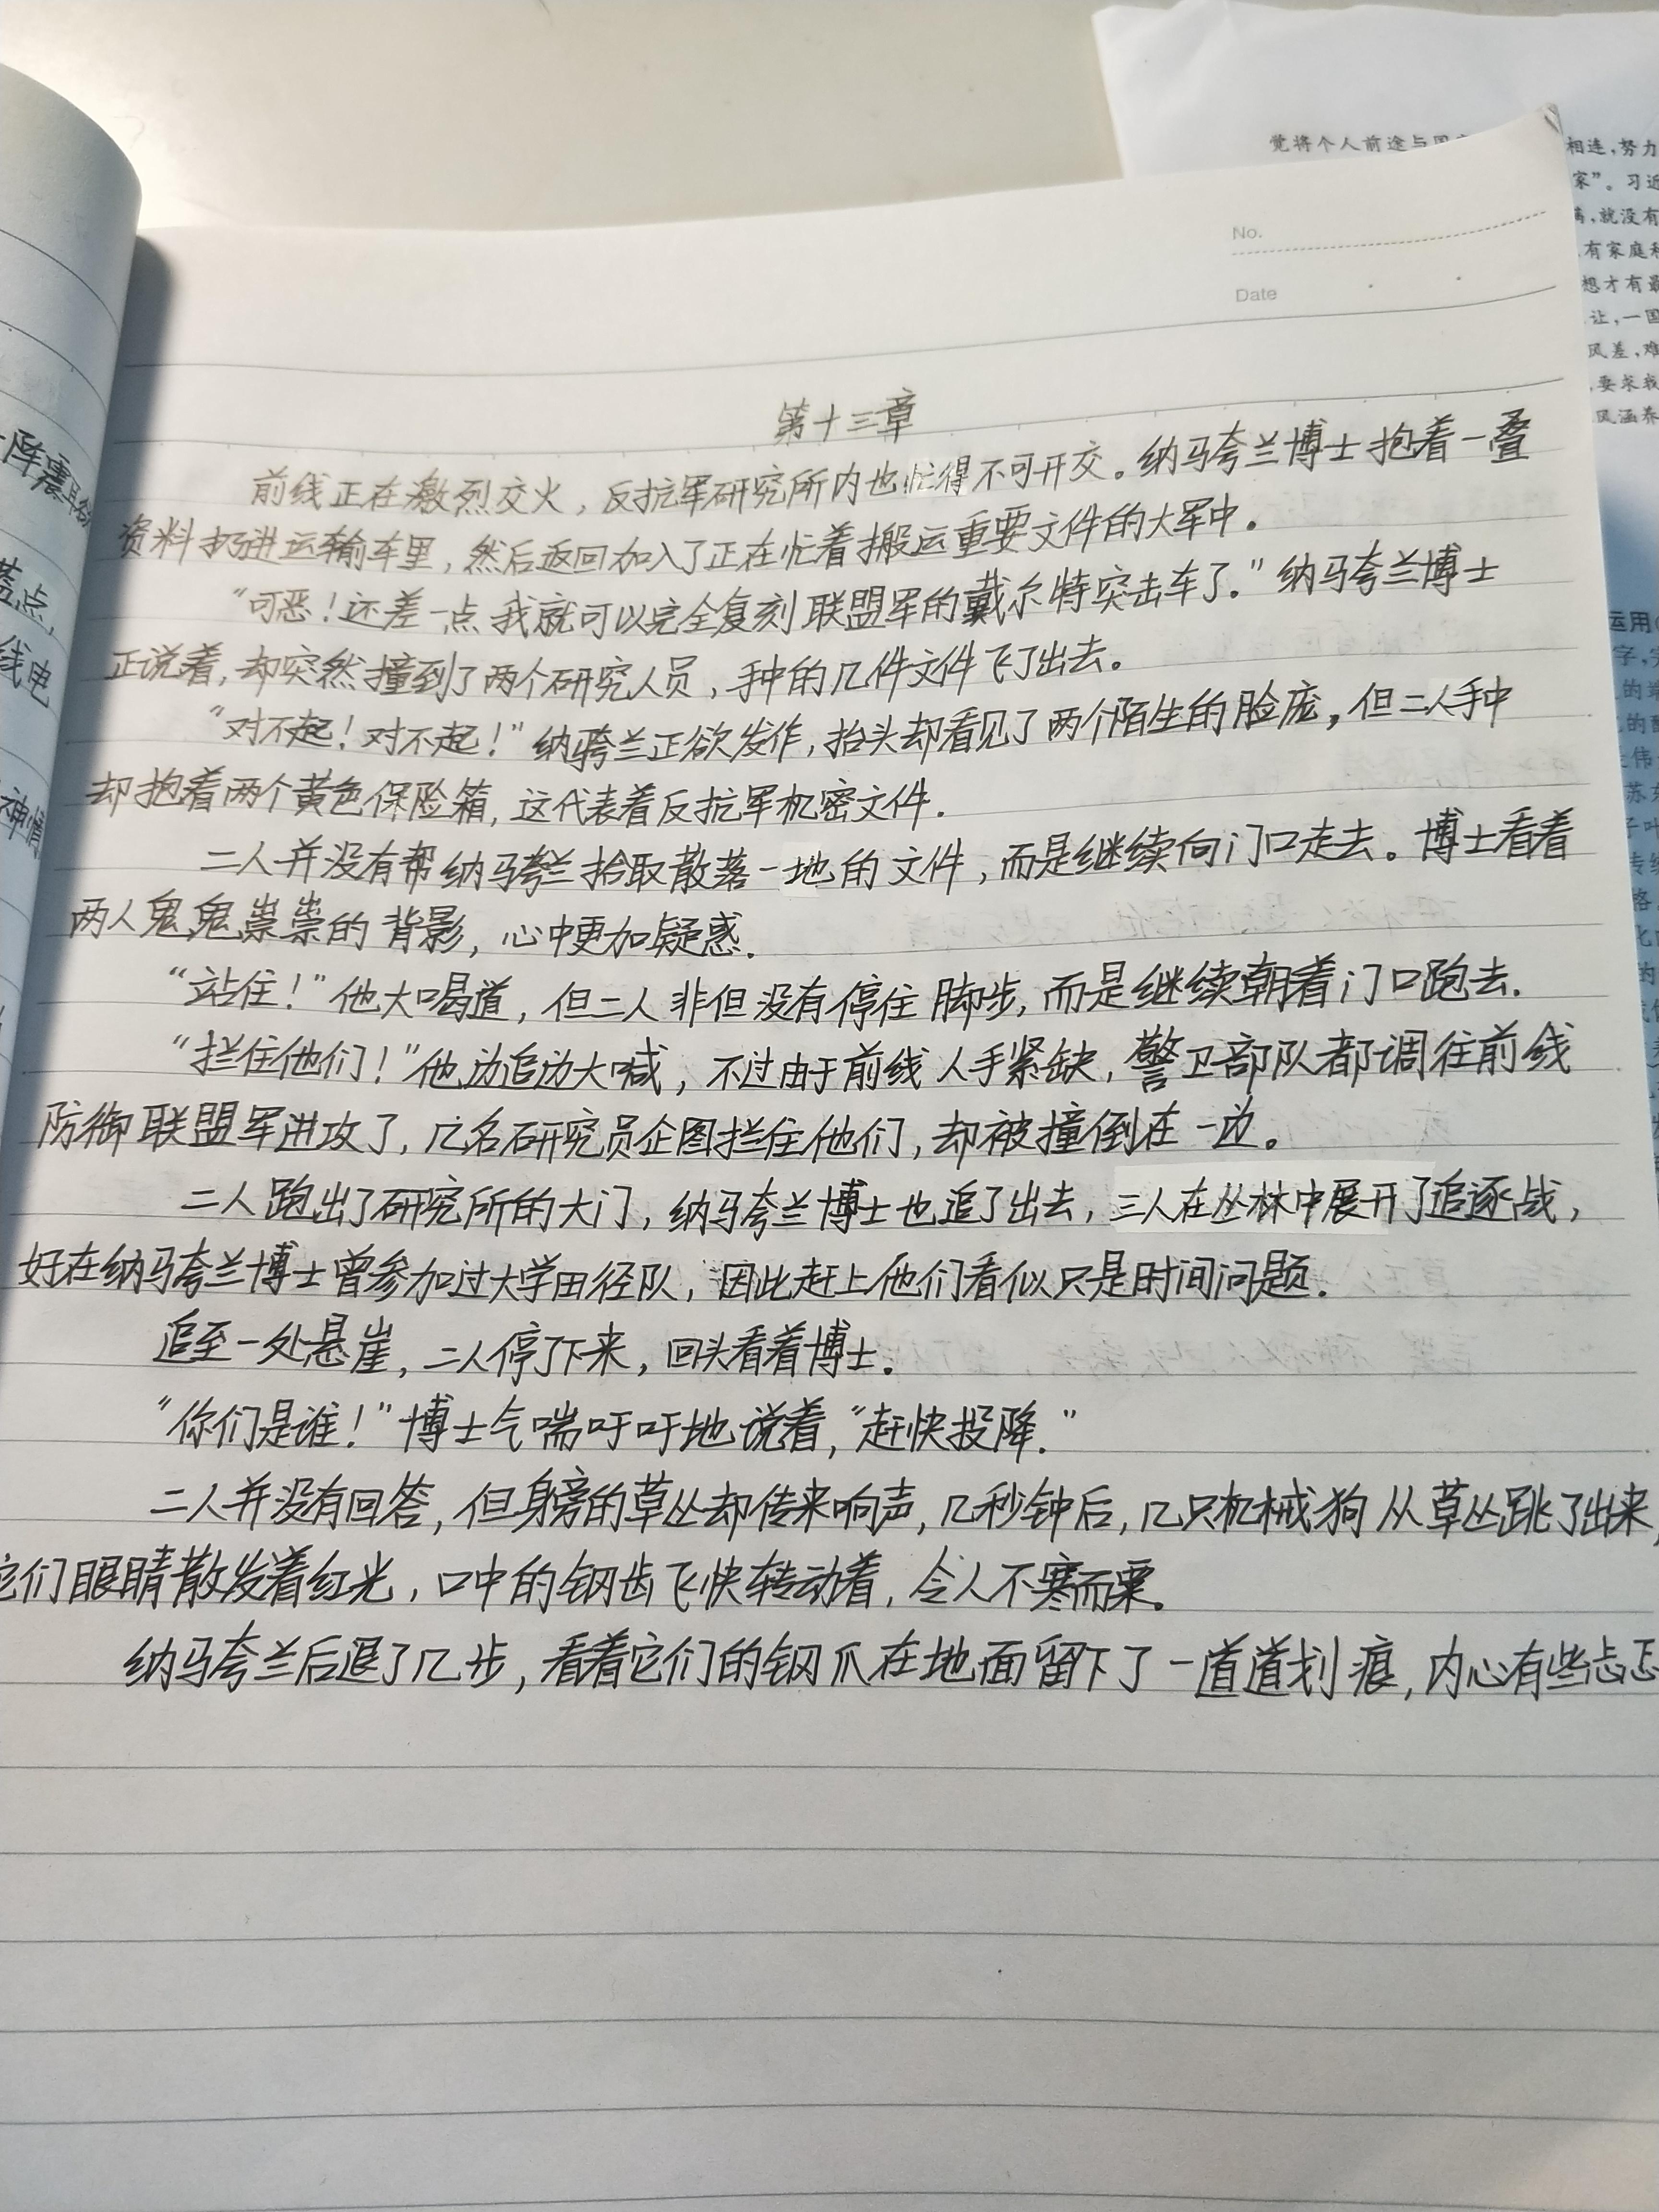 No.
Date
第十三章
前线正在激烈交火，反抗军研究所内也忙得不可开交。纳马夸兰博士抱着一叠
资料扔进运输车里，然后返回加入了正在忙着搬运重要文件的大军中。
“可恶！还差一点我就可以完全复刻联盟军的戴尔特突击车了。”纳马夸兰博士
正说着，却突然撞到了两个研究人员，手中的几件文件飞了出去。
“对不起！对不起！”纳夸兰正欲发作，抬头却看见了两个陌生的脸庞，但二人手中
却抱着两个黄色保险箱，这代表着反抗军机密文件.
二人并没有帮纳马夸兰拾取散落一地的文件，而是继续向门口走去。博士看着
两人鬼鬼祟祟的背影，心中更加疑惑.
“站住！”他大喝道，但二人非但没有停住脚步，而是继续朝着门口跑去.
“拦住他们！”他边追边大喊，不过由于前线人手紧缺，警卫部队都调往前线
防御联盟军进攻了，几名研究员企图拦住他们，却被撞倒在一边。
二人跑出了研究所的大门，纳马夸兰博士也追了出去，三人在丛林中展开了追逐战，
好在纳马夸兰博士曾参加过大学田径队，因此赶上他们看似只是时间问题.
追至一处悬崖，二人停了下来，回头看着博士.
“你们是谁！”博士气喘吁吁地说着，“赶快投降.”
二人并没有回答，但身旁的草丛却传来响声，几秒钟后，几只机械狗从草丛跳了出来，
它们眼睛散发着红光，口中的钢齿飞快转动着，令人不寒而栗。
纳马夸兰后退了几步，看着它们的钢爪在地面留下了一道道划痕，内心有些忐忑
阵震耳
蓝点，
线电
神
觉将个人前途与国
相连，努力
家”。习近
就没有
有家庭
想才有最
让，一国
风差，难
要求我
风涵养
运用
字，
的
的
伟
苏东
子叶
传统
格
的